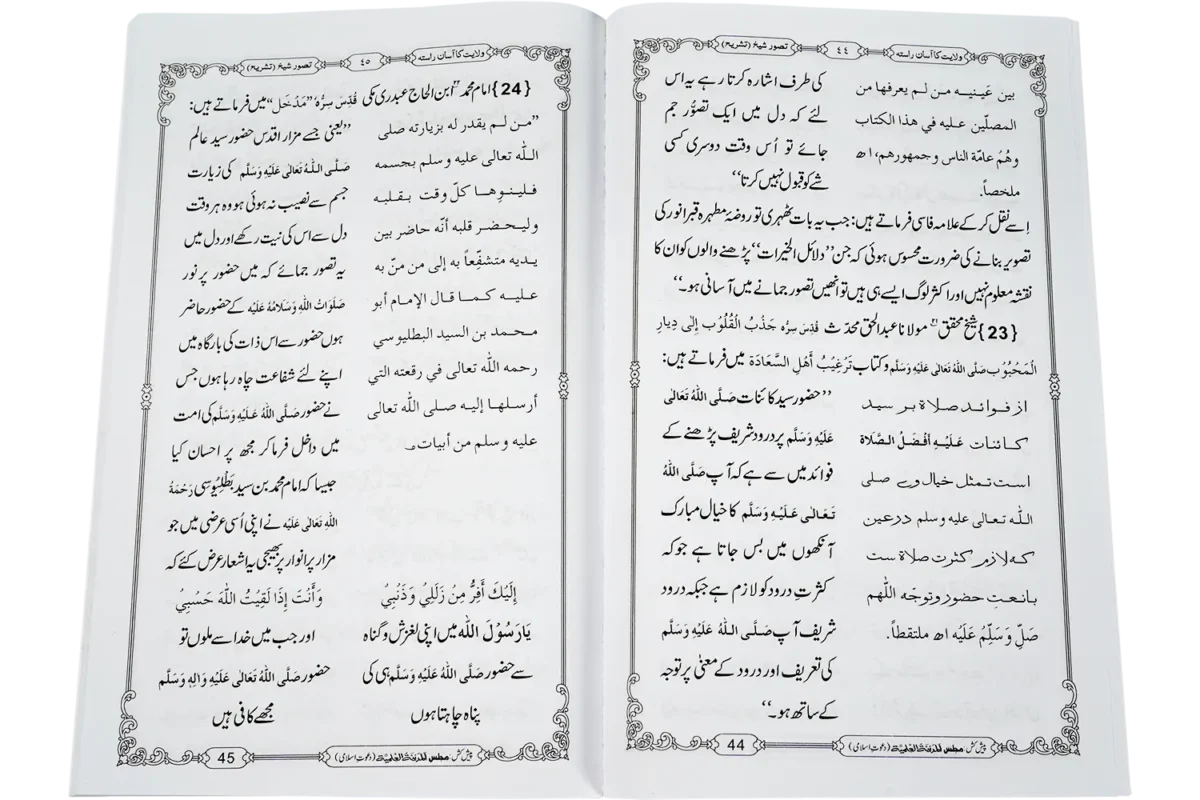 ولایت کا آسان راستہ ٤٤ تصور شیخ (تشریح)
بين عَينيه من لم يعرفها من
المصلّين عليه في هذا الكتاب
وهُم عامّة الناس وجمهورهم، اھ
ملخصاً.
کی طرف اشارہ کرتا رہے یہ اس
لئے کہ دل میں ایک تصوُّر جم
جائے تو اُس وقت دوسری کسی
شے کو قبول نہیں کرتا‘‘
اِسے نقل کر کے علامہ فاسی فرماتے ہیں: جب یہ بات ٹھہری تو روضۂ مطہرہ قبر انور کی
تصویر بنانے کی ضرورت محسوس ہوئی کہ جن ’’دلائل الخیرات‘‘ پڑھنے والوں کو ان کا
نقشہ معلوم نہیں اور اکثر لوگ ایسے ہی ہیں تو انھیں تصور جمانے میں آسانی ہو۔‘‘
{23} شیخ محقق مولانا عبد الحق محدّث قُدِّسَ سِرُّہ جَذْبُ الْقُلُوب إِلَى دِيارِ
الْمَحْبُوب صَلَّی اللّٰہُ تَعَالٰی عَلَیْہِ وَسَلَّم و کتاب تَرْغِیْبُ أَھْلِ السَّعَادَة میں فرماتے ہیں:
از فوائد صلاة بر سید
کائنات عَلَيْهِ اَفْضَلُ الصَّلَاة
است تمثل خیال وے صلی
اللہ تعالی علیہ وسلم در عین
کہ لازم کثرت صلاة ست
بانعتِ حضور و توجّہ اللّٰهم
صَلِّ وَسَلِّمْ عَلَيْه اھ ملتقطاً.
’’حضور سید کائنات صَلَّی اللّٰہُ تَعَالٰی
عَلَیْہِ وَسَلَّم پر درود شریف پڑھنے کے
فوائد میں سے ہے کہ آپ صَلَّی اللّٰہُ
تَعَالٰی عَلَیْہِ وَسَلَّم کا خیال مبارک
آنکھوں میں بس جاتا ہے جو کہ
کثرتِ درود کو لازم ہے جبکہ درود
شریف آپ صَلَّی اللّٰہُ عَلَیْہِ وَسَلَّم
کی تعریف اور درود کے معنٰی پر توجہ
کے ساتھ ہو۔‘‘
پیش کش: مجلس المدینة العلمیة (دعوتِ اسلامی) 44
ولایت کا آسان راستہ ٤٥ تصور شیخ (تشریح)
{24} امام محمد ابن الحاج عبدری مکی قُدِّسَ سِرُّہُ ’’مَدْخَل‘‘ میں فرماتے ہیں:
’’من لم يقدر له بزيارته صلى
اللّه تعالى عليه وسلم بجسمه
فلينوها كلّ وقت بقلبه
وليحضر قلبه أنّه حاضر بين
يديه متشفّعاً به إلى من منّ به
عليه كما قال الإمام أبو
محمد بن السيد البطليوسي
رحمه اللّه تعالى في رقعته التي
أرسلها إليه صلى اللّه تعالى
عليه وسلم من أبيات
’’یعنی جسے مزار اقدس حضور سید عالم
صَلَّی اللّٰہُ تَعَالٰی عَلَیْہِ وَسَلَّم کی زیارت
جسم سے نصیب نہ ہوئی ہو وہ ہر وقت
دل سے اس کی نیت رکھے اور دل میں
یہ تصور جمائے کہ میں حضور پر نور
صَلَوَاتُ اللّٰہِ وَسَلَامُہٗ عَلَیْہ کے حضور حاضر
ہوں حضور سے اس ذات کی بارگاہ میں
اپنے لئے شفاعت چاہ رہا ہوں جس
نے حضور صَلَّی اللّٰہُ عَلَیْہِ وَسَلَّم کی امت
میں داخل فرما کر مجھ پر احسان کیا
جیسا کہ امام محمد بن سید بَطْلِیُوسِی رَحْمَةُ
اللّٰہِ تَعَالٰی عَلَیْہ نے اپنی اُسی عرضی میں جو
مزار پر انوار پر بھیجی یہ اشعار عرض کئے کہ
إِلَيْكَ أَفِرُّ مِنْ زَلَلِيْ وَذَنْبِيْ وَأَنْتَ إِذَا لَقِيْتُ اللّٰهَ حَسْبِيْ
یَا رَسُوْلَ اللّٰہ میں اپنی لغزش و گناہ اور جب میں خدا سے ملوں تو
سے حضور صَلَّی اللّٰہُ عَلَیْہِ وَسَلَّم ہی کی حضور صَلَّی اللّٰہُ تَعَالٰی عَلَیْہِ وَاٰلِہٖ وَسَلَّم
پناہ چاہتا ہوں مجھے کافی ہیں
پیش کش: مجلس المدینة العلمیة (دعوتِ اسلامی) 45